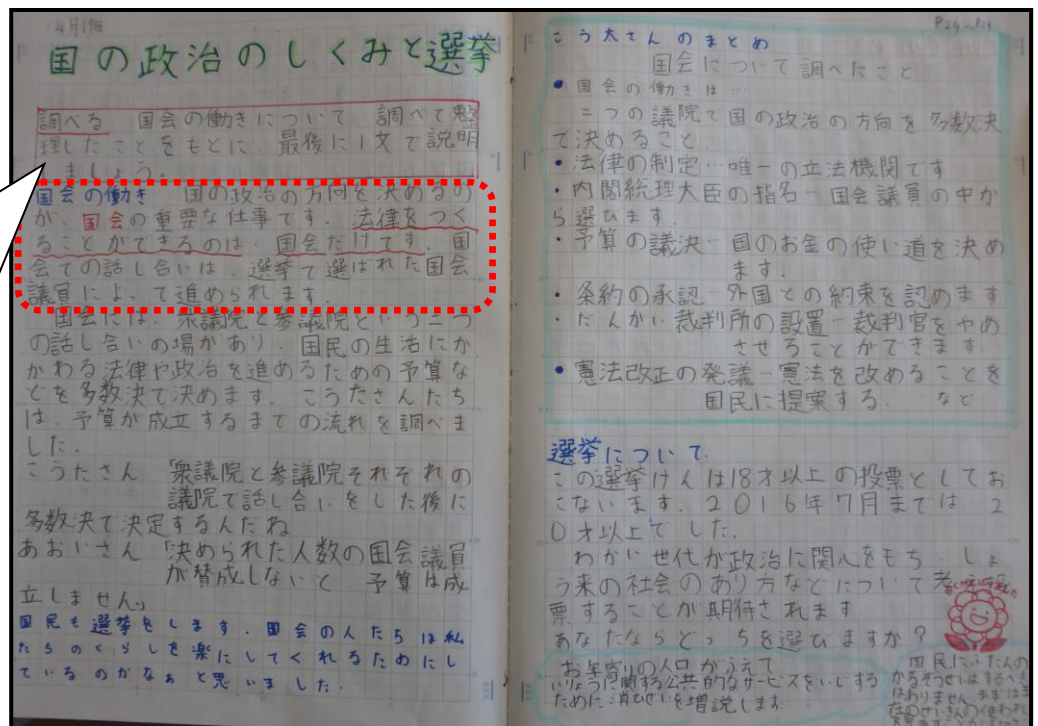 4月19日
国の政治のしくみと選挙
調べる 国会の働きについて 調べて整
理したことをもとに、最後に1文で説明
しましょう。
国会の働き 国の政治の方向を決めるの
が、国会の重要な仕事です。法律をつく
ることができるのは、国会だけです。国
会での話し合いは、選挙で選ばれた国会
議員によって進められます。
国会には、衆議院と参議院という二つ
の話し合いの場があり、国民の生活にか
かわる法律や政治を進めるための予算な
どを多数決で決めます。こうたさんたち
は、予算が成立するまでの流れを調べま
した。
こうたさん 「衆議院と参議院それぞれの
議院で話し合いをした後に
多数決で決定するんだね
あおいさん 「決められた人数の国会議員
が賛成しないと 予算は成
立しません。」
国民も選挙をします。国会の人たちは私
たちのくらしを楽にしてくれるためにし
ているのかなぁと思いました。
こう太さんのまとめ
国会について調べたこと
・国会の働きは…
二つの議院で国の政治の方向を多数決
で決めること
・法律の制定…唯一の立法機関です
・内閣総理大臣の指名…国会議員の中か
ら選びます。
・予算の議決…国のお金の使い道を決め
ます。
・条約の承認…外国との約束を認めます
・だんがい裁判所の設置…裁判官をやめ
させることができます。
・憲法改正の発議…憲法を改めることを
国民に提案する。 など
選挙について
この選挙けんは18才以上の投票としてお
こないます。2016年7月までは 2
0才以上でした。
わかい世代が政治に関心をもち、しょ
う来の社会のあり方などについて考え投
票することが期待されます
あなたならどっちを選びますか？
お年寄りの人口がふえて
いりょうに関する公共的なサービスをいじする
ために消ひぜいを増税します
国民にふたんの
かるぞうぜいはするべき
はありません。まずは